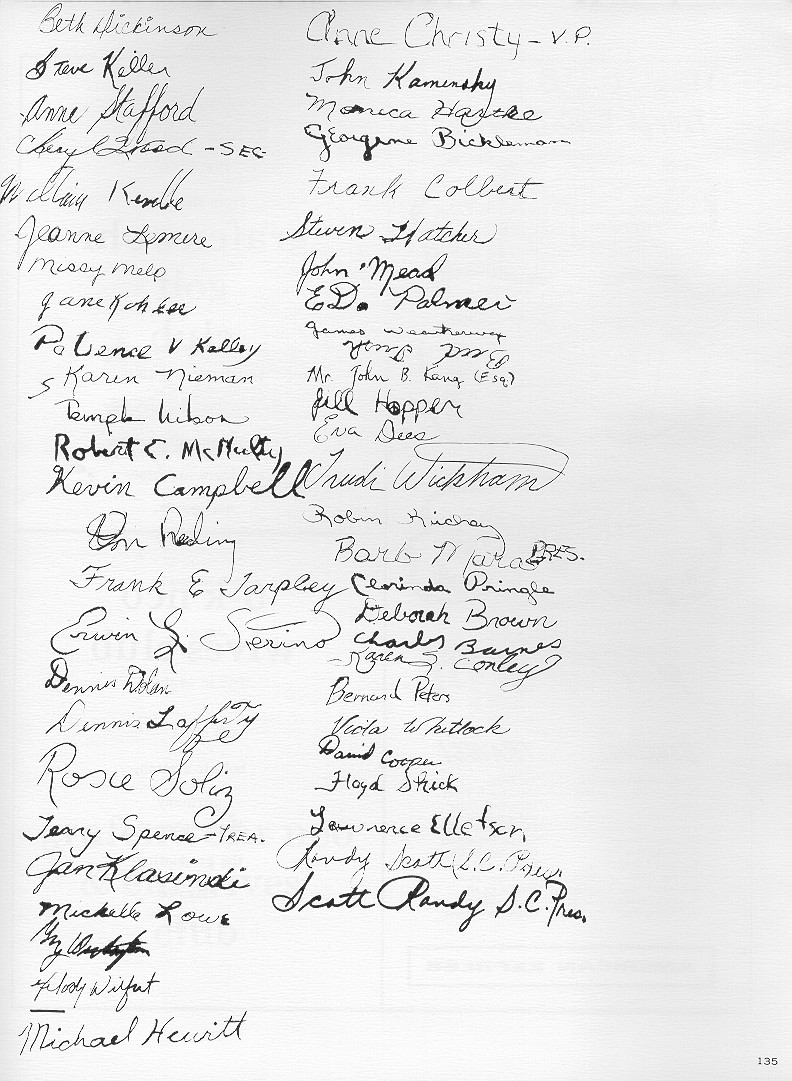 Beth Dickinson
Steve Keller
Anne Stafford
Cheryl - SEC
William
Jeanne Lemire
Missy Melo
Jane
V Kelley
Karen Nieman
Temple Wilson
Robert E. McNulty
Kevin Campbell
Frank E Tarpley
Erwin L. Serino
Dennis Dolan
Dennis Lafferty
Rosie Soliz
Terry Spence - TREA.
Jan Klasinski
Michelle Lowe
Melody
Michael Hewitt
Anne Christy - V.P.
John Kaminsky
Monica Hartke
Georgene Bickleman
Frank Colbert
Steven Hatcher
John Mead
ED. Palmer
James
Mr. John B. Kang (Esq)
Jill Hopper
Eva Dees
Trudi Wickham
Robin
Barb Mara PRES.
Clorinda Pringle
Deborah Brown
Charles Barnes
Karen L. Conley
Bernard Peters
Viola Whitlock
David Cooper
Floyd Shick
Lawrence Elletson
Randy Scott S.C. Pres.
Scott Randy S.C. Pres.
135